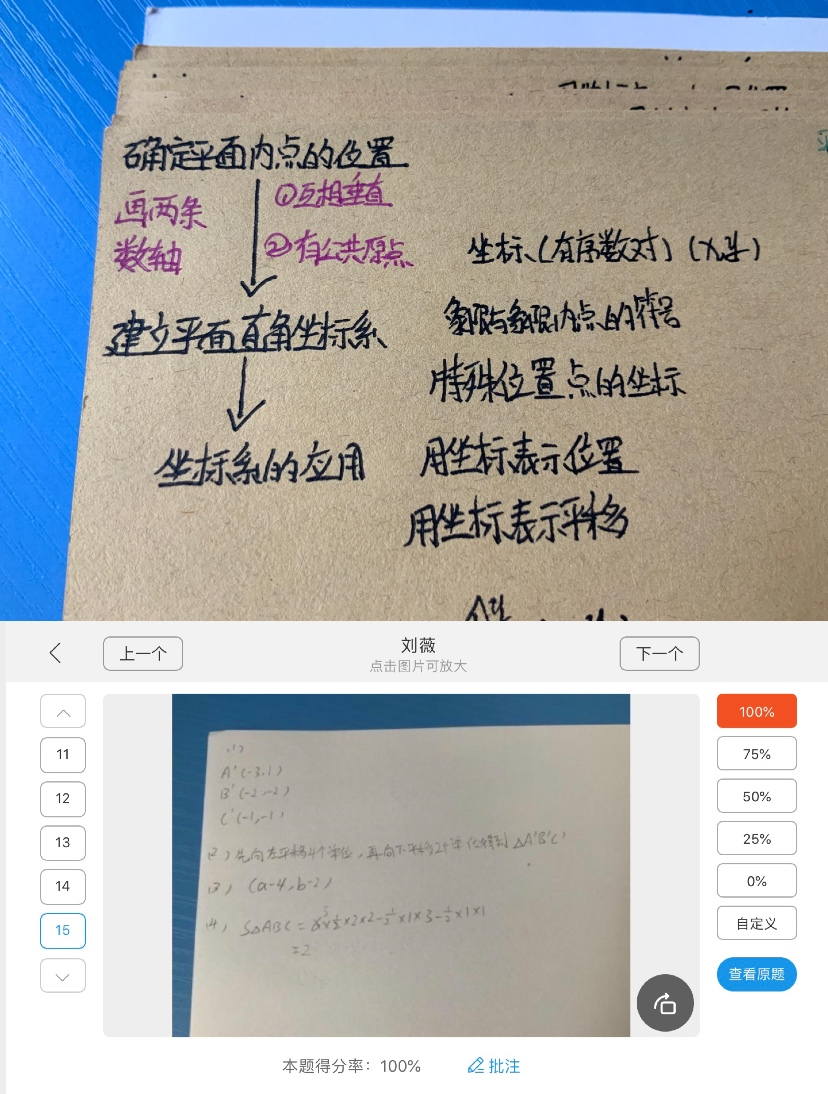 确定平面内点的位置
画两条
数轴
①互相垂直
②有公共原点
建立平面直角坐标系
坐标系的应用
坐标(有序数对)(x,y)
象限与象限内点的符号
特殊位置点的坐标
用坐标表示位置
用坐标表示平移
上一个
刘薇
点击图片可放大
下一个
11
12
13
14
15
(1)
A'(-3,1)
B'(-2,-2)
C'(-1,-1)
(2)先向左平移4个单位,再向下平移2个单位得到△A'B'C'
(3)(a-4,b-2)
(4) S△ABC=
=2
100%
75%
50%
25%
0%
自定义
查看原题
本题得分率：100%
批注